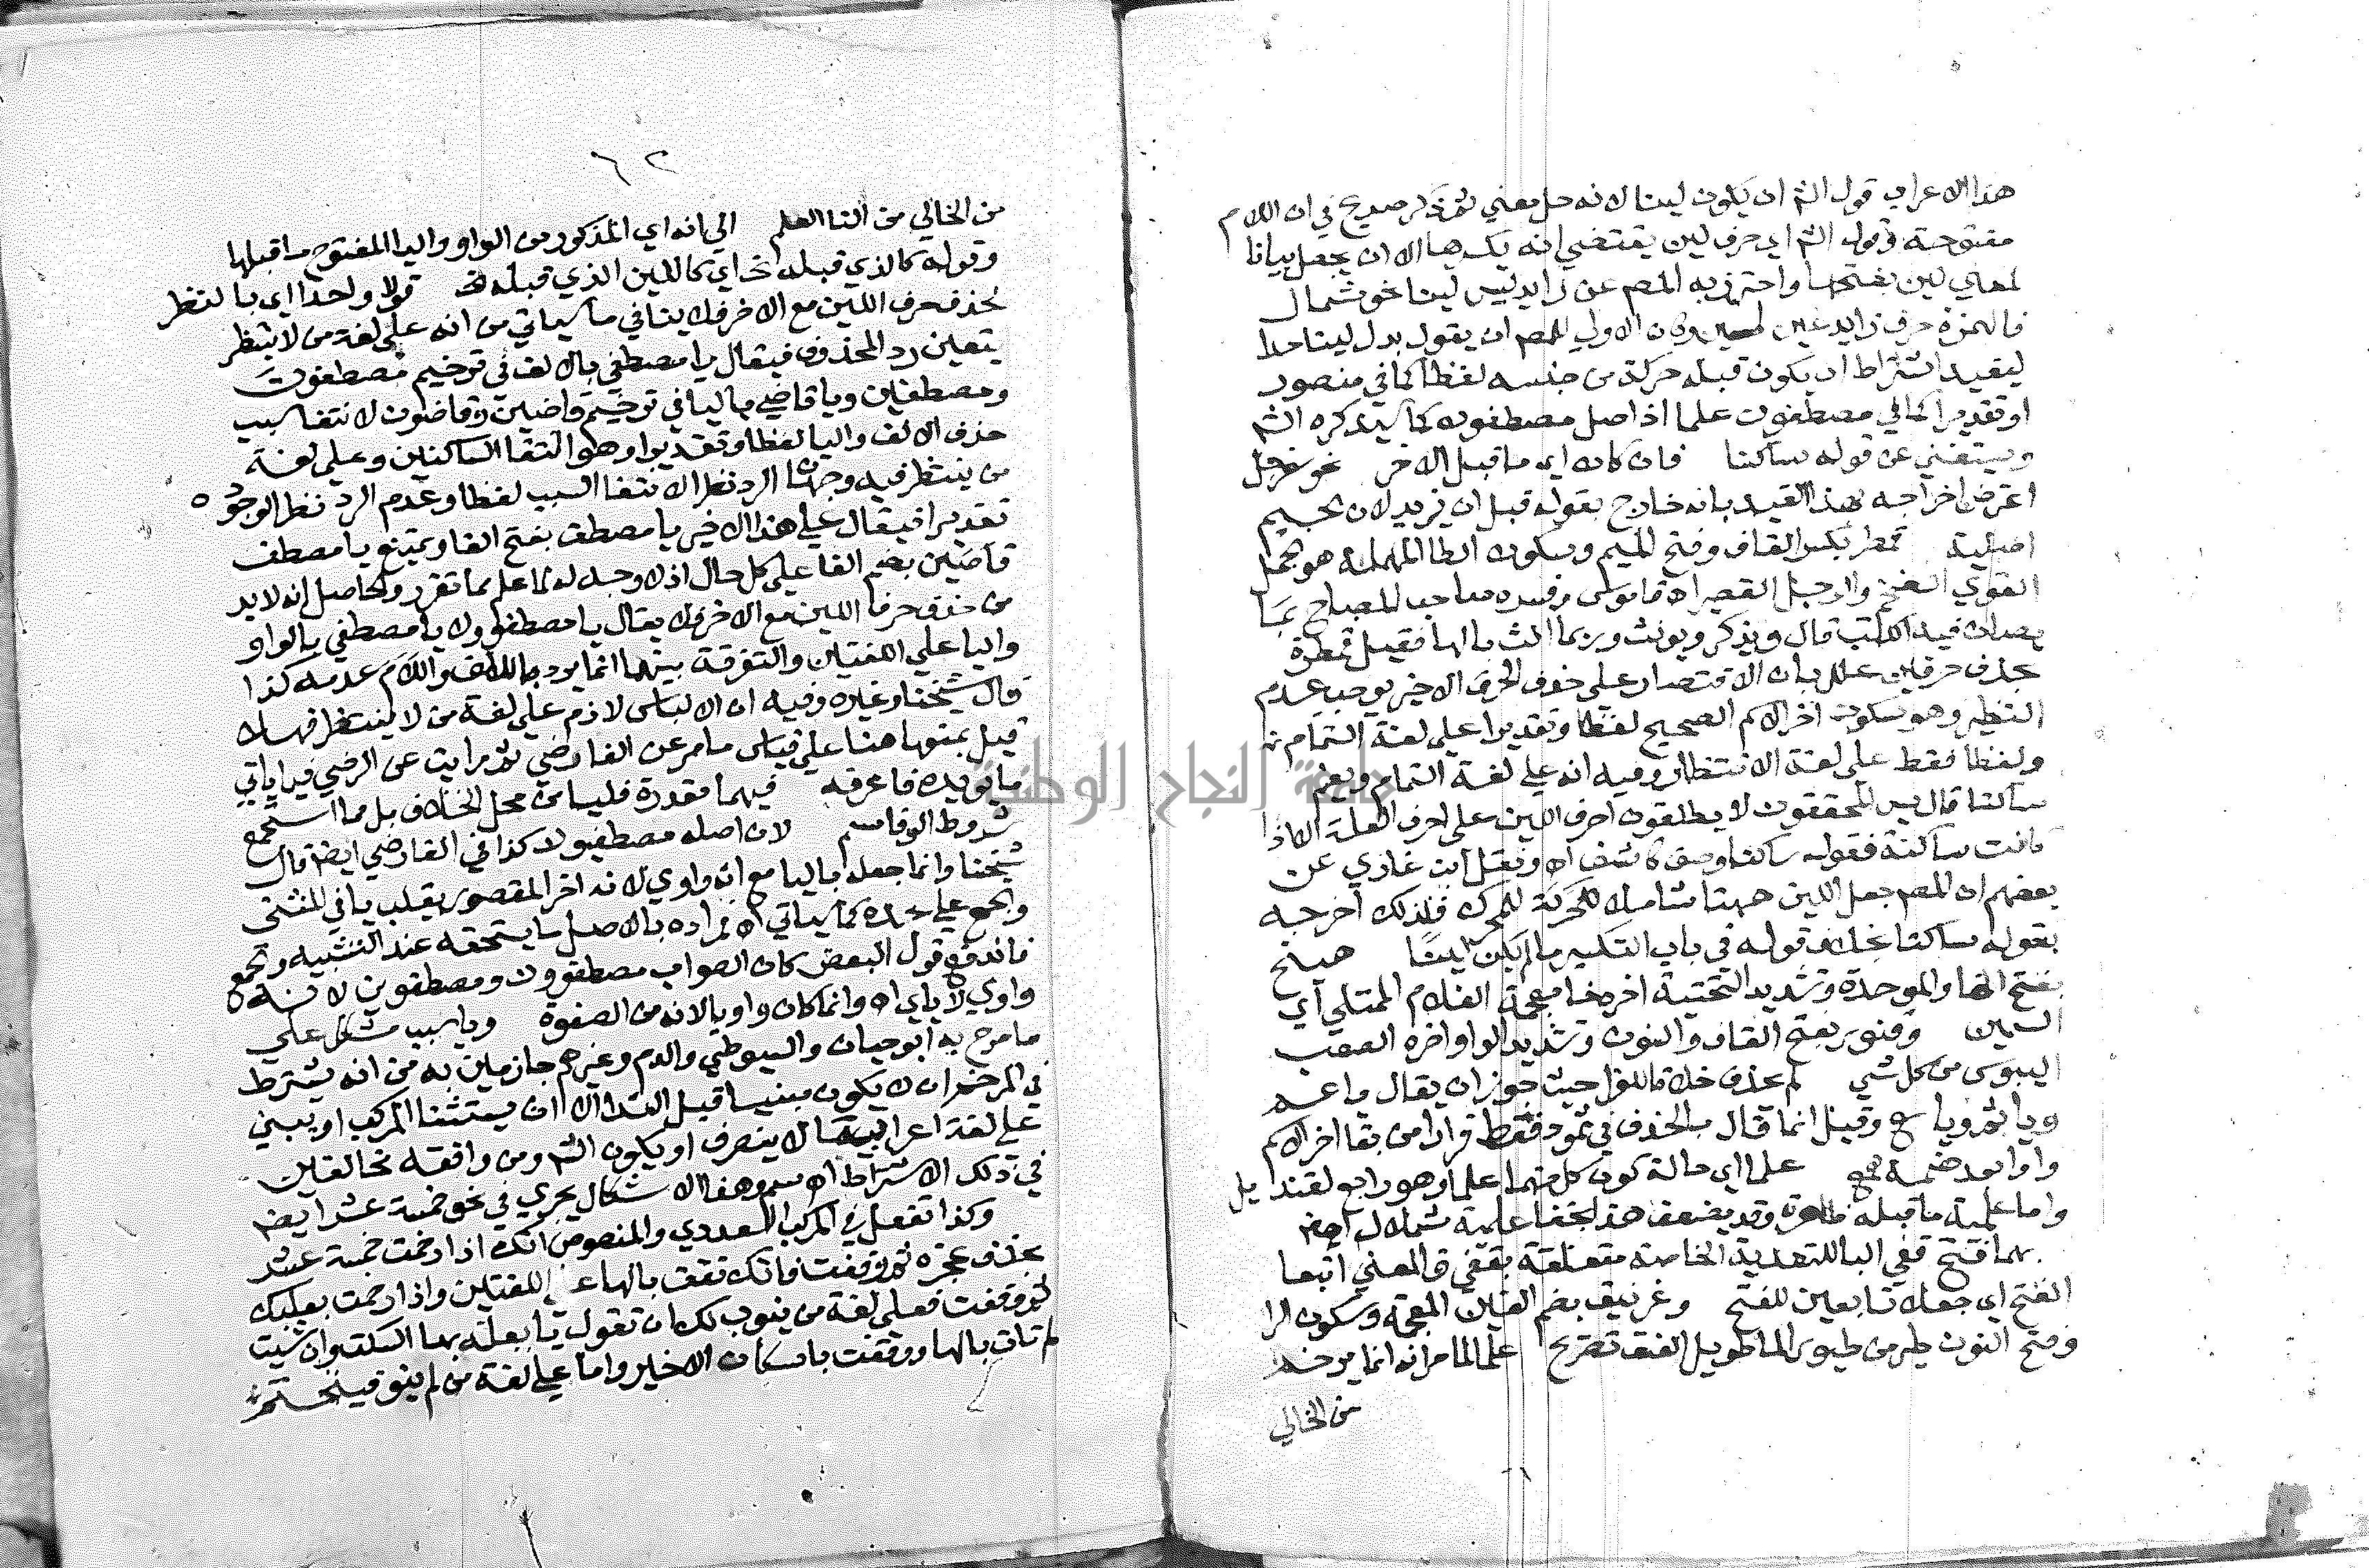 هذا الاعراب قول الشم ان يكون لينا لانه حل معني ثم ذكر صريح في ان اللام
مفتوحة وقول الشم اي حرف لين يقتضي انه بكسرها الا ان يجعل بيانا
لمعني لين بفتحها واحترز به المصم عن زايد ليس لينا نحو شمال
فالهمزة حرف زايد غير لين وكان الاولي للمصم ان يقول بدل لينا مدا
ليفيد اشتراط ان يكون قبله حركة من جنسه لفظا كما في منصور
او تقديرا كما في مصطفون علما اذ اصل مصطفون كما سيذكره الشم
ويستغني عن قوله ساكنا فان كان اي ما قبل الاخر نحو سفرجل
اعترض اخراجه بهذا القيد بانه خارج بقوله قبل ان زيد لان الجيم
اصلية قمطر بكسر القاف وفتح الميم وسكون الطا المهملة هو الجمل
القوي الضخم والرجل القصير اه قاموس وفسره صاحب المصباح بما
يصان فيه الكتب قال ويذكر ويونث وربما انث بالها فقيل قمطرة
بحذف حرفين علل بان الاقتصار علي حذف الحرف الاخير يوجب عدم
النظير وهو سكون اخر الاسم الصحيح لفظا وتقديرا علي لغة التمام
ولفظا فقط علي لغة الانتظار وفيه انه علي لغة التمام ويضم
ساكنا قال يس المحققون لا يطلقون احرف اللين علي احرف العلة الا اذا
كانت ساكنة فقوله ساكنا وصف كاشف اه ونقل ابن غازي عن
بعضهم ان المصم جعل اللين ههنا شاملا للحركة للمحرك فلذلك اخرجه
بقوله ساكنا بخلاف قوله في باب التكسير ما لم يكن لينا هبيخ
بفتح الها والموحدة وتشديد التحتية اخره خا معجمة الغلام الممتلي اي
السمين وقنور بفتح القاف والنون وتشديد الواو اخره الصعب
اليبوس من كل شي لم يحذف خلافا للفرا حيث جوز ان يقال يا عم
ويا ثم ويا سع وقيل انما قال بالحذف في ثمود فقط فرارا من بقا اخر الاسم
واوا بعد ضمة همع علما اي حالة كون كل منهما علما وهو راجع لقنديل
واما علمية ما قبله ظاهرة وقد يضعف هذا بخفا علمية شملال
بهما فتح قفي البا للتعدية الخاصة متعلقة بقفي والمعني اتبعا
الفتح اي جعلا تابعين للفتح وغرنيق بضم الغين المعجمة وسكون الرا
وفتح النون طير من طيور الما طويل العنق تصريح علما لما مر انه انما يرخم
من الخالي
٦٢
من الخالي من التا العلم الي انه اي المذكور من الواو واليا المفتوح ما قبلها
وقوله كالذي قبله الخ اي كاللين الذي قبله الخ قولا واحدا اي بالنظر
لحذف حرف اللين مع الاخر فلا ينافي ما سياتي من انه علي لغة من لا ينتظر
يتعين رد المحذوف فيقال يا مصطفي بالالف في ترخيم مصطفون
ومصطفين ويا قاضي باليا في ترخيم قاضين وقاضون لانتفا سبب
حذف الالف واليا لفظا وتقديرا وهو التقا الساكنين وعلي لغة
من ينتظر فيه وجهان الرد نظرا لانتفا السبب لفظا وعدم الرد نظرا لوجوده
تقديرا فيقال علي هذا الاخير يا مصطف بفتح الفا ويمتنع يا مصطف
قاضين بضم الفا علي كل حال اذ لا وجه له لما علم مما تقرر والحاصل انه لا بد
من حذف حرف اللين مع الاخر فلا يقال يا مصطفو ولا يا مصطفي بالواو
واليا علي اللغتين والتفرقة بينهما انما يرد بها الالف واللام عدمه كذا
قال شيخنا وغيره وفيه ان الالباس لازم علي لغة من لا ينتظر فهلا
قيل بمنعها هنا علي قياس ما مر عن الفارضي ثم رايت عن الرضي فيما ياتي
ما يويده فاعرفه فيهما مقدرة فليسا من محل الخلاف بل مما استجمع
شروط الوفا سم لان اصله مصطفيون كذا في الفارضي ايضا قال
شيخنا وانما جعله باليا مع انه واوي لانه اخر المقصور يقلب يا في المثني
والجمع علي حده كما سياتي اه فمراده بالاصل ما يستحقه عند التثنيه والجمع
فاندفع قول البعض كان الصواب مصطفوون ومصطفوين لانه
واوي لا ياي اه وانما كان واويا لانه من الصفوة ويا سيب مشكل علي
ما صرح به ابو حيان والسيوطي والدم وغيرهم جازمين به من انه يشترط
في المرخم ان لا يكون مبنيا قبل الندا الا ان يستثنا المركب او يبني
علي لغة اعرابه ما لا ينصرف او يكون الشم ومن وافقه مخالفين
في ذلك الاشتراط اه سم وهذا الاشكال يجري في نحو خمسة عشر ايضا
وكذا تفعل في المركب العددي والمنصوص انك اذا رخمت خمسة عشر
بحذف عجزه ثم وقفت فانك تقف بالها علي اللغتين واذا رخمت بعلبك
ثم وقفت فعلي لغة من ينوي لك ان تقول يا بعله بها السكت وان شيت
لم تات بالها ووقفت باسكان الاخير واما علي لغة من لم ينو فيتحتم